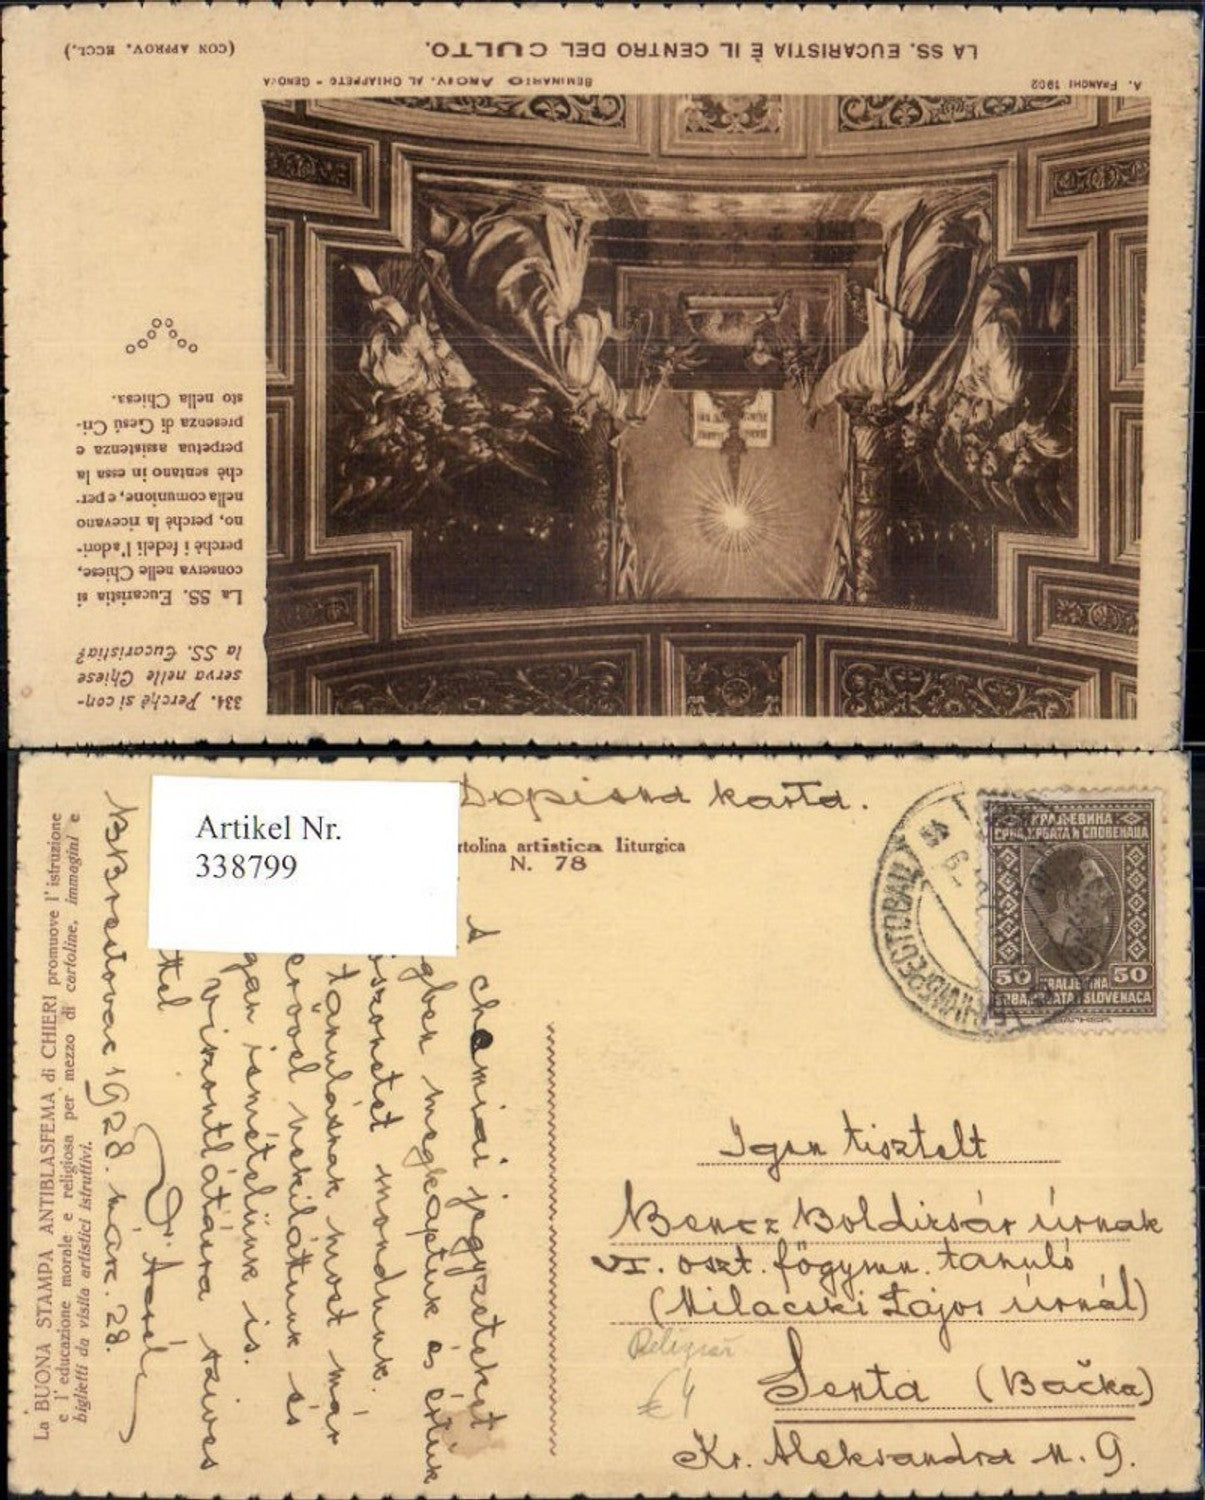 LA SS. EUCARISTIA È IL CENTRO DEL CULTO.
(CON APPROV. ECCL.)
A. FRANCHI 1902
SEMINARIO ARCIV. AL CHIAPPETO - GENOVA
334. Perchè si con-
serva nelle Chiese
la SS. Eucaristia?
La SS. Eucaristia si
conserva nelle Chiese,
perchè i fedeli l'adori-
no, perchè la ricevano
nella comunione, e per-
chè sentano in essa la
perpetua assistenza e
presenza di Gesù Cri-
sto nella Chiesa.
Artikel Nr.
338799
Dopisna karta.
rtolina artistica liturgica
N. 78
La BUONA STAMPA ANTIBLASFEMA di CHIERI promuove l'istruzione
e l'educazione morale e religiosa per mezzo di cartoline, immagini e
biglietti da visita artistici istruttivi.
A chemiai jegyzeteket
gben megkaptuk és értük
szönetet mondunk.
tanulásnak most már
erővel nekiláttunk és
gan ismételünk is.
viszontlátásra szives
ttel
B. Brestovac 1928. márc. 28.
КРАЉЕВИНА
СРБА, ХРВАТА И СЛОВЕНАЦА
50 50
KRALJEVINA
SRBA, HRVATA I SLOVENACA
Igen tisztelt
Bencz Boldizsár úrnak
VI. oszt. főgymn. tanuló
(Milacski Lajos úrnál)
Senta (Bačka)
Kr. Aleksandra u. 9.
€4